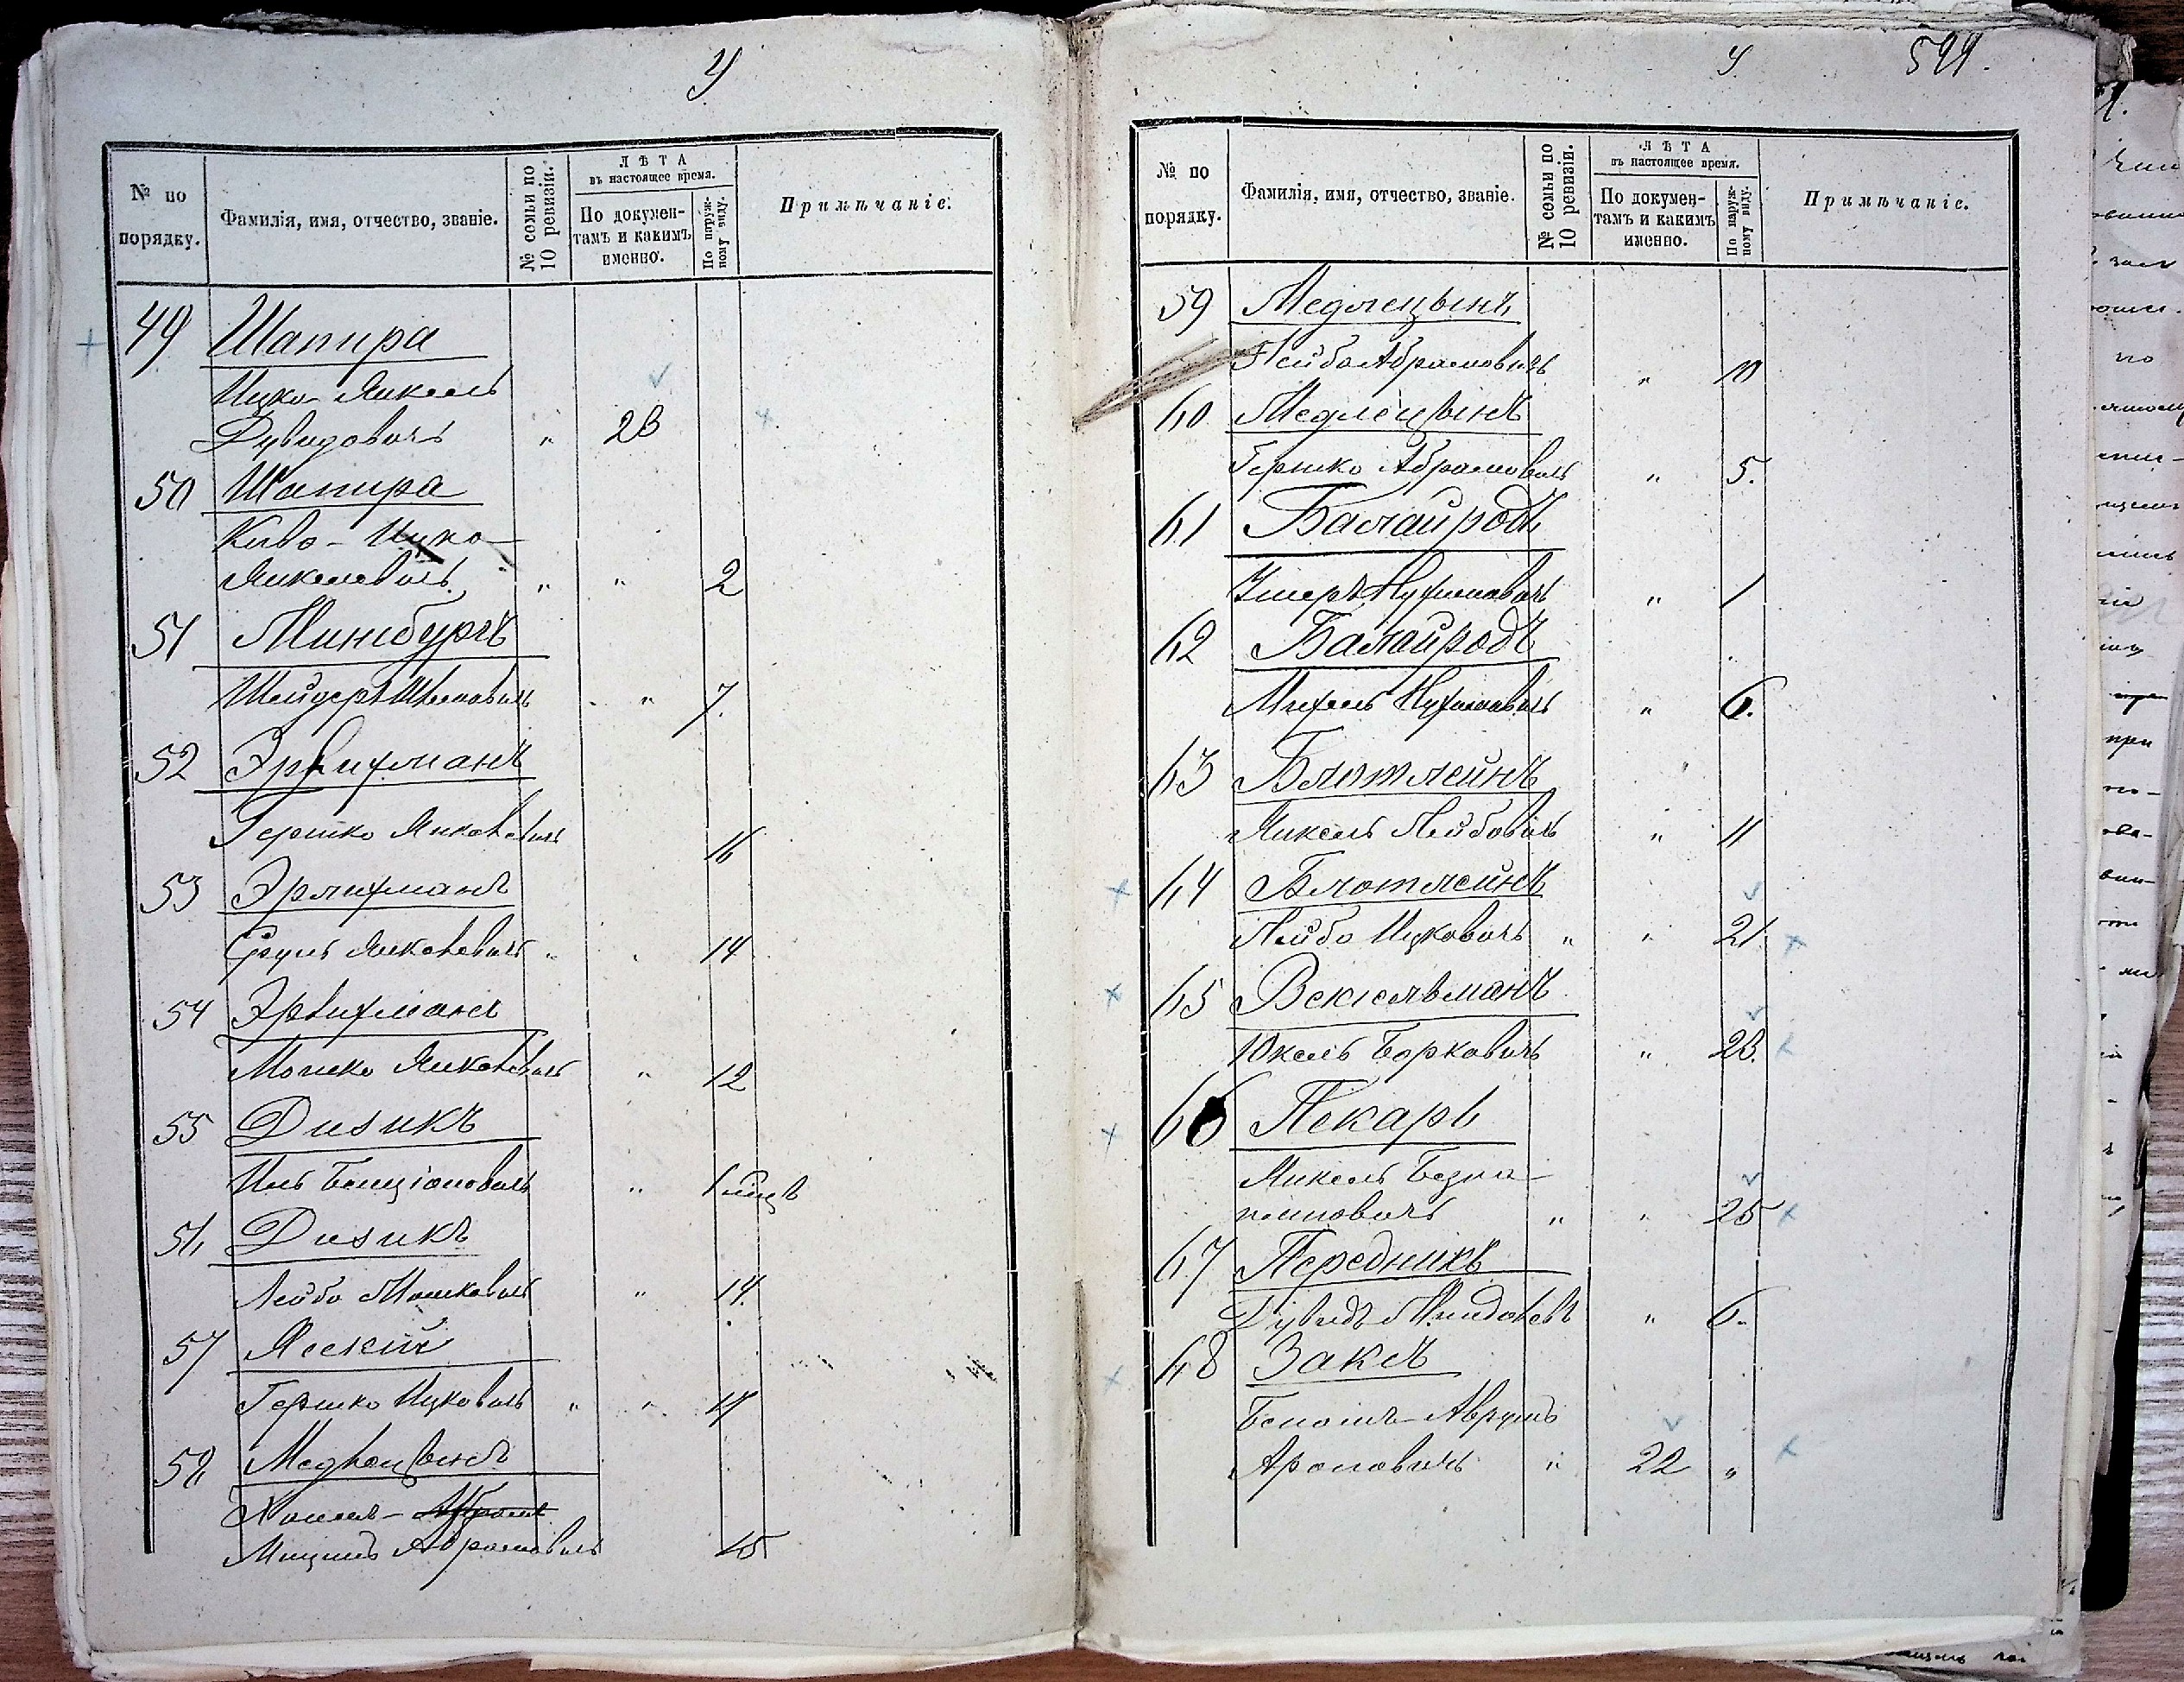 № по порядку.
Фамилія, имя, отчество, званіе.
№ семьи по 10 ревизіи.
ЛѢТА
въ настоящее время.
По докумен-
тамъ и какимъ
именно.
По наруж-
ному виду.
Примѣчаніе.
49 Шапира
Ицко-Янкель
Дувидовичъ " 23
50 Шапира
Киво-Ицко-
Янкелевичъ " " 2
51 Минбургъ
" 7.
52 Эрлихманъ
Гершко Янкелевичъ 16
53 Эрлихманъ
Сруль Янкелевичъ " " 14
54 Эрлихманъ
Мошко Янкелевичъ " 12
55 Дизикъ
Бенціоновичъ "
56 Дизикъ
Лейбо Мошковичъ " 14.
57
Гершко Ицковичъ " "
58
Абрамовичъ 15
599.
№ по порядку.
Фамилія, имя, отчество, званіе.
№ семьи по 10 ревизіи.
ЛѢТА
въ настоящее время.
По докумен-
тамъ и какимъ
именно.
По наруж-
ному виду.
Примѣчаніе.
59 Медлецынъ
Лейбо Абрамовичъ " 10
60 Медлецынъ
Гершко Абрамовичъ " 5.
61 Балайродъ
Ушеръ Нухимовичъ " 1
62 Балайродъ
Михель Нухимовичъ " 6.
63 Блотлейнъ
Янкель Лейбовичъ " 11
64 Блотлейнъ
Лейбо Ицковичъ " " 21.
65 Вексельманъ
Юкель Борковичъ " 23.
66 Пекарь
Янкель
" " 25
67 Передникъ
Дувидъ " 6.
68 Заксъ
Аврумъ
Ароновичъ " 22 "